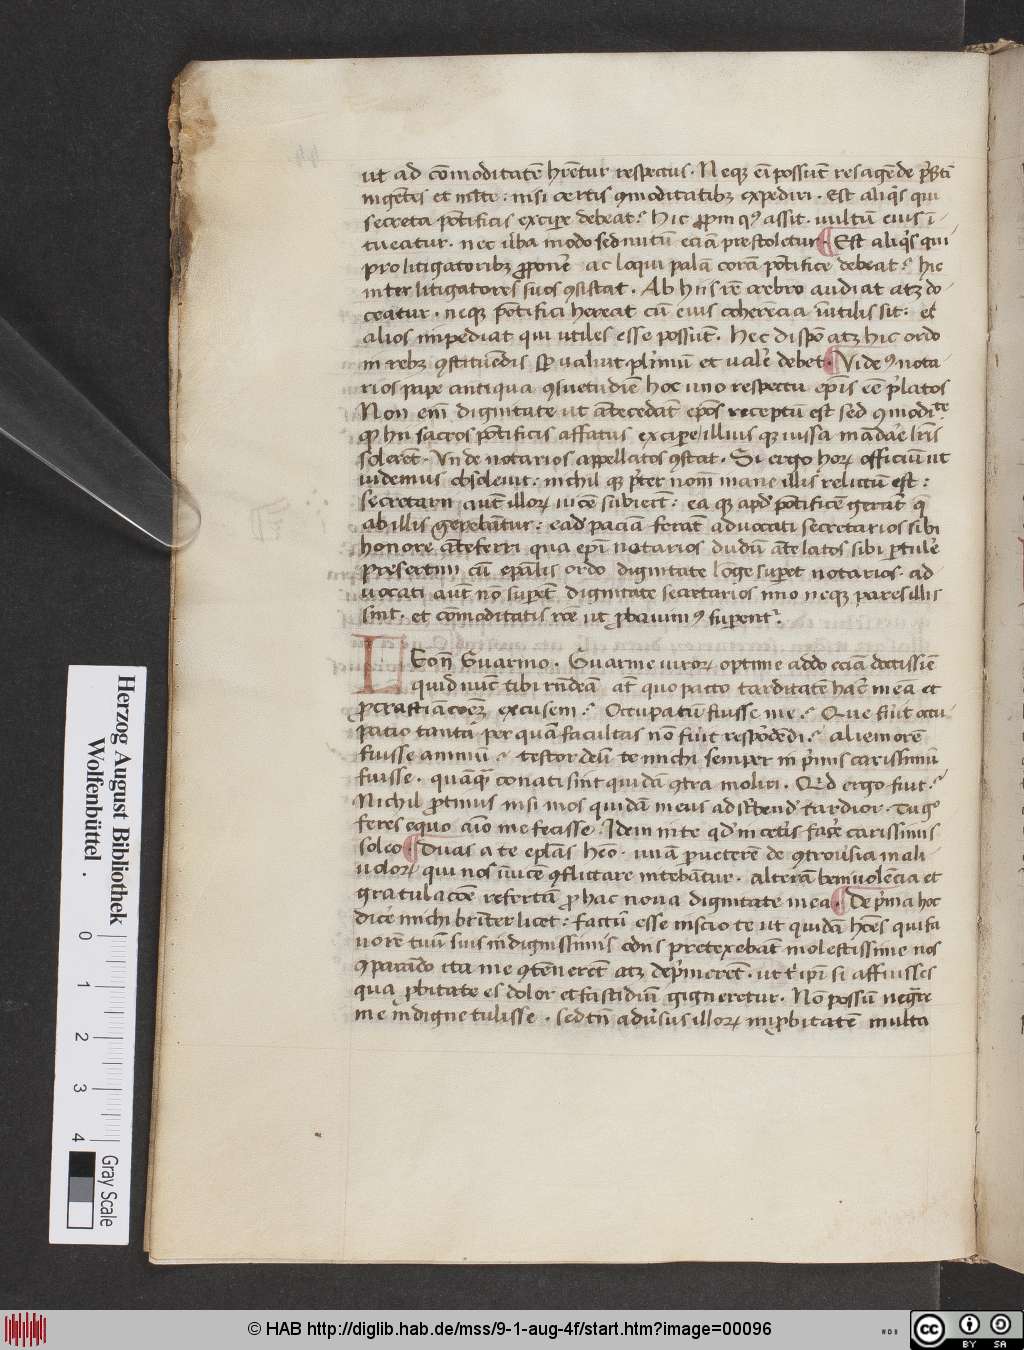 ut ad cōmoditatē hrētur respectus. Neqꝫ eī possūt res agēde p̄stāti
ingētes et mlte: nisi certis ꝯmoditatibꝫ expediri. Est aliqͥs qui
secreta pōtificis excipe debeat? hic ꝓpinqꝰ assit. vultū eius ī-
tueatur. nec ūba modo sed nutū eciā prestoletur. Est aliqͥs qui
pro litigatoribꝫ ꝓponē ac loqui palā corā pōtifice debeat? hic
inter litigatores suos ꝯsistat. Ab hiis rē crebro audiat atꝫ do-
ceatur. neqꝫ pōtifici hereat cū eius coherēcia īutilis sit: et
alios impediat qui utiles esse possūt. Hec dispō atꝫ hic ordo
in rebꝫ ꝯstituēdis sꝑ valuit plͥmū et valē debet. Videꝰ nota-
rios pape antiqua ꝯsuetudīe hoc uno respectu epīs eē p̄latos
Non enī dignitate ut ātecedāt epōs receptū est sed ꝯmoditate
qꝫ hii sacros pōtificis affatus excipe/illius qꝫ iussa mādāe lrīs
solerēt. Vnde notarios appellatos ꝯstat. Si ergo horꝫ officiū ut
videmus obsolevit: nichil qꝫ p̄ter nomē inane illis relictū est:
secretarii aūt illorꝫ vicē subierūt: ea qꝫ apd pōtificē gerāt q̄
ab illis gerebātur: eād paciā. ferāt advocati secretarios sibi
honore āteferri qua epī notarios dudū ātelatos sibi ꝑtulē
presertim cū epālis ordo dignitate lōge supet notarios. ad-
vocati aūt nō supēt dignitate secretarios imo neqꝫ pares illis
sint. et cōmoditatis rcē ut ꝓbavimꝰ supentͬ.
LEon̄ Guarino. Guarine virorꝫ optime addo eciā doctissīe
quid nūc tibi rn̄deā āt quo pacto tarditatē hāc meā et
ꝓcrastīacōeꝫ excusem? Occupatū fuisse me? Que fuit occu-
patio tanta per quā facultas nō fuit respōdēdi? aliemorē
fuisse animū? testor deū te michi semper in p̄mis carissimū
fuisse. quāqͣꝫ conati sint quidā ꝯtra moliri. Qd ergo fuit?
Nichil ꝓrsus nisi mos quidā meus ad scͥbendū tardior.
feres equo aīo me fecisse. Idem in te qd in cetīs facē carissimis
soleo. Duas a te eplās heō. unā ꝑ veterē de ꝯtrovsia mali-
volorꝫ qui nos īvicē ꝯflictare intēbantur. alterā benivolēcia et
gratulacōe refertā ꝓ hac nova dignitate mea. De p̄ma hoc
dicē michi brīter licet: factū esse inscio te ut quidā hoīes qui fa-
vorē tuū suis indignissimis cōdnis pretexebāt molestissime nos
ꝯparādo ita me ꝯtēnerēt atꝫ dep̄merēt. ut tͥ ipī si affuisses
qua ꝓbitate es dolor et fastidiū gigneretur. Nō possū negāre
me indigne tulisse. sed tn̄ adūsus illorꝫ īprobitatē multa
Herzog August Bibliothek
Wolfenbüttel
0 1 2 3 4
Gray Scale
© HAB http://diglib.hab.de/mss/9-1-aug-4f/start.htm?image=00096
WDB
cc BY SA